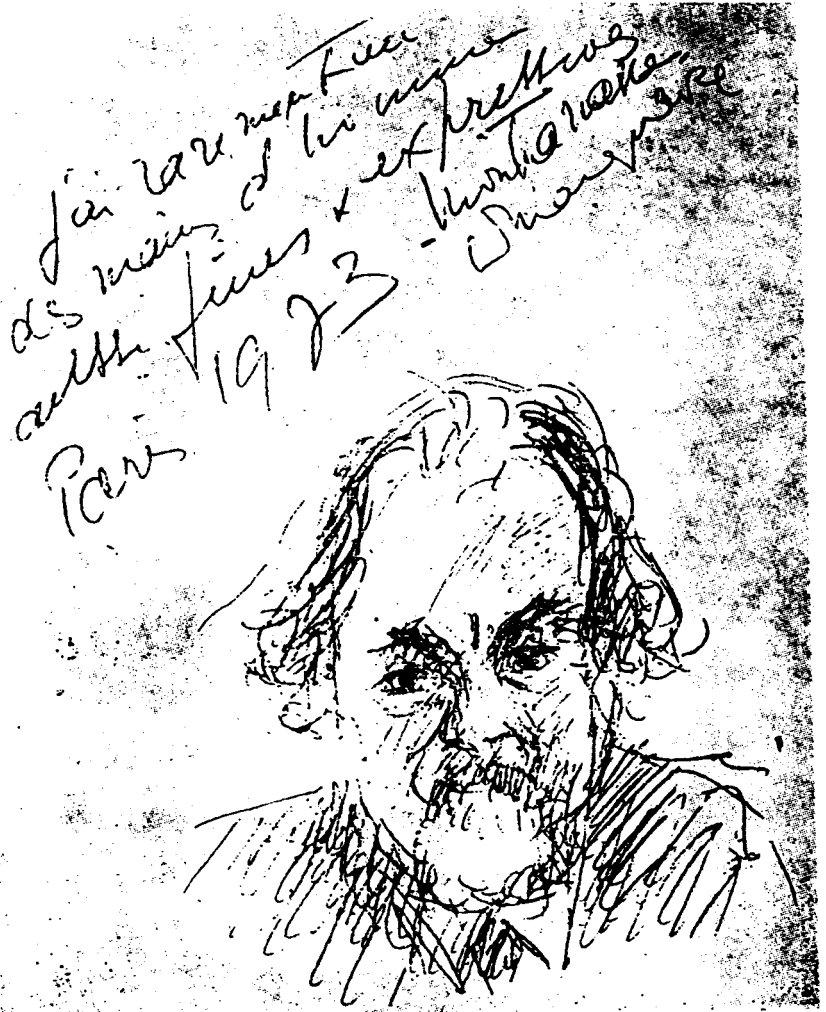 j'ai rarement vu
des mains d'homme
aussi fines & expressives
Paris 1973 -